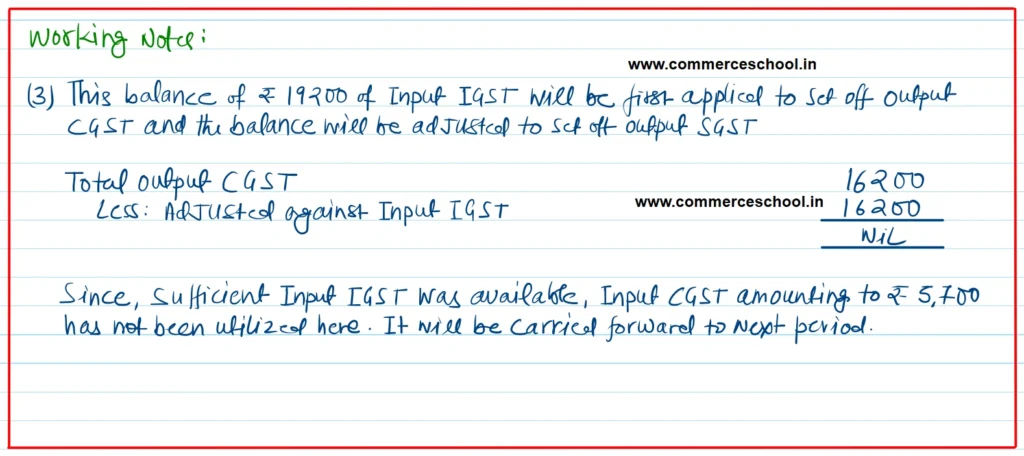 Working Note:
www.commerceschool.in
(3) This balance of ₹ 19200 of Input IGST will be first applied to set off output
CGST and the balance will be adjusted to set off output SGST
Total output CGST 16200
Less: Adjusted against Input IGST www.commerceschool.in 16200
NiL
Since, Sufficient Input IGST was available, Input CGST amounting to ₹ 5,700
has not been utilized here. It will be carried forward to Next period.